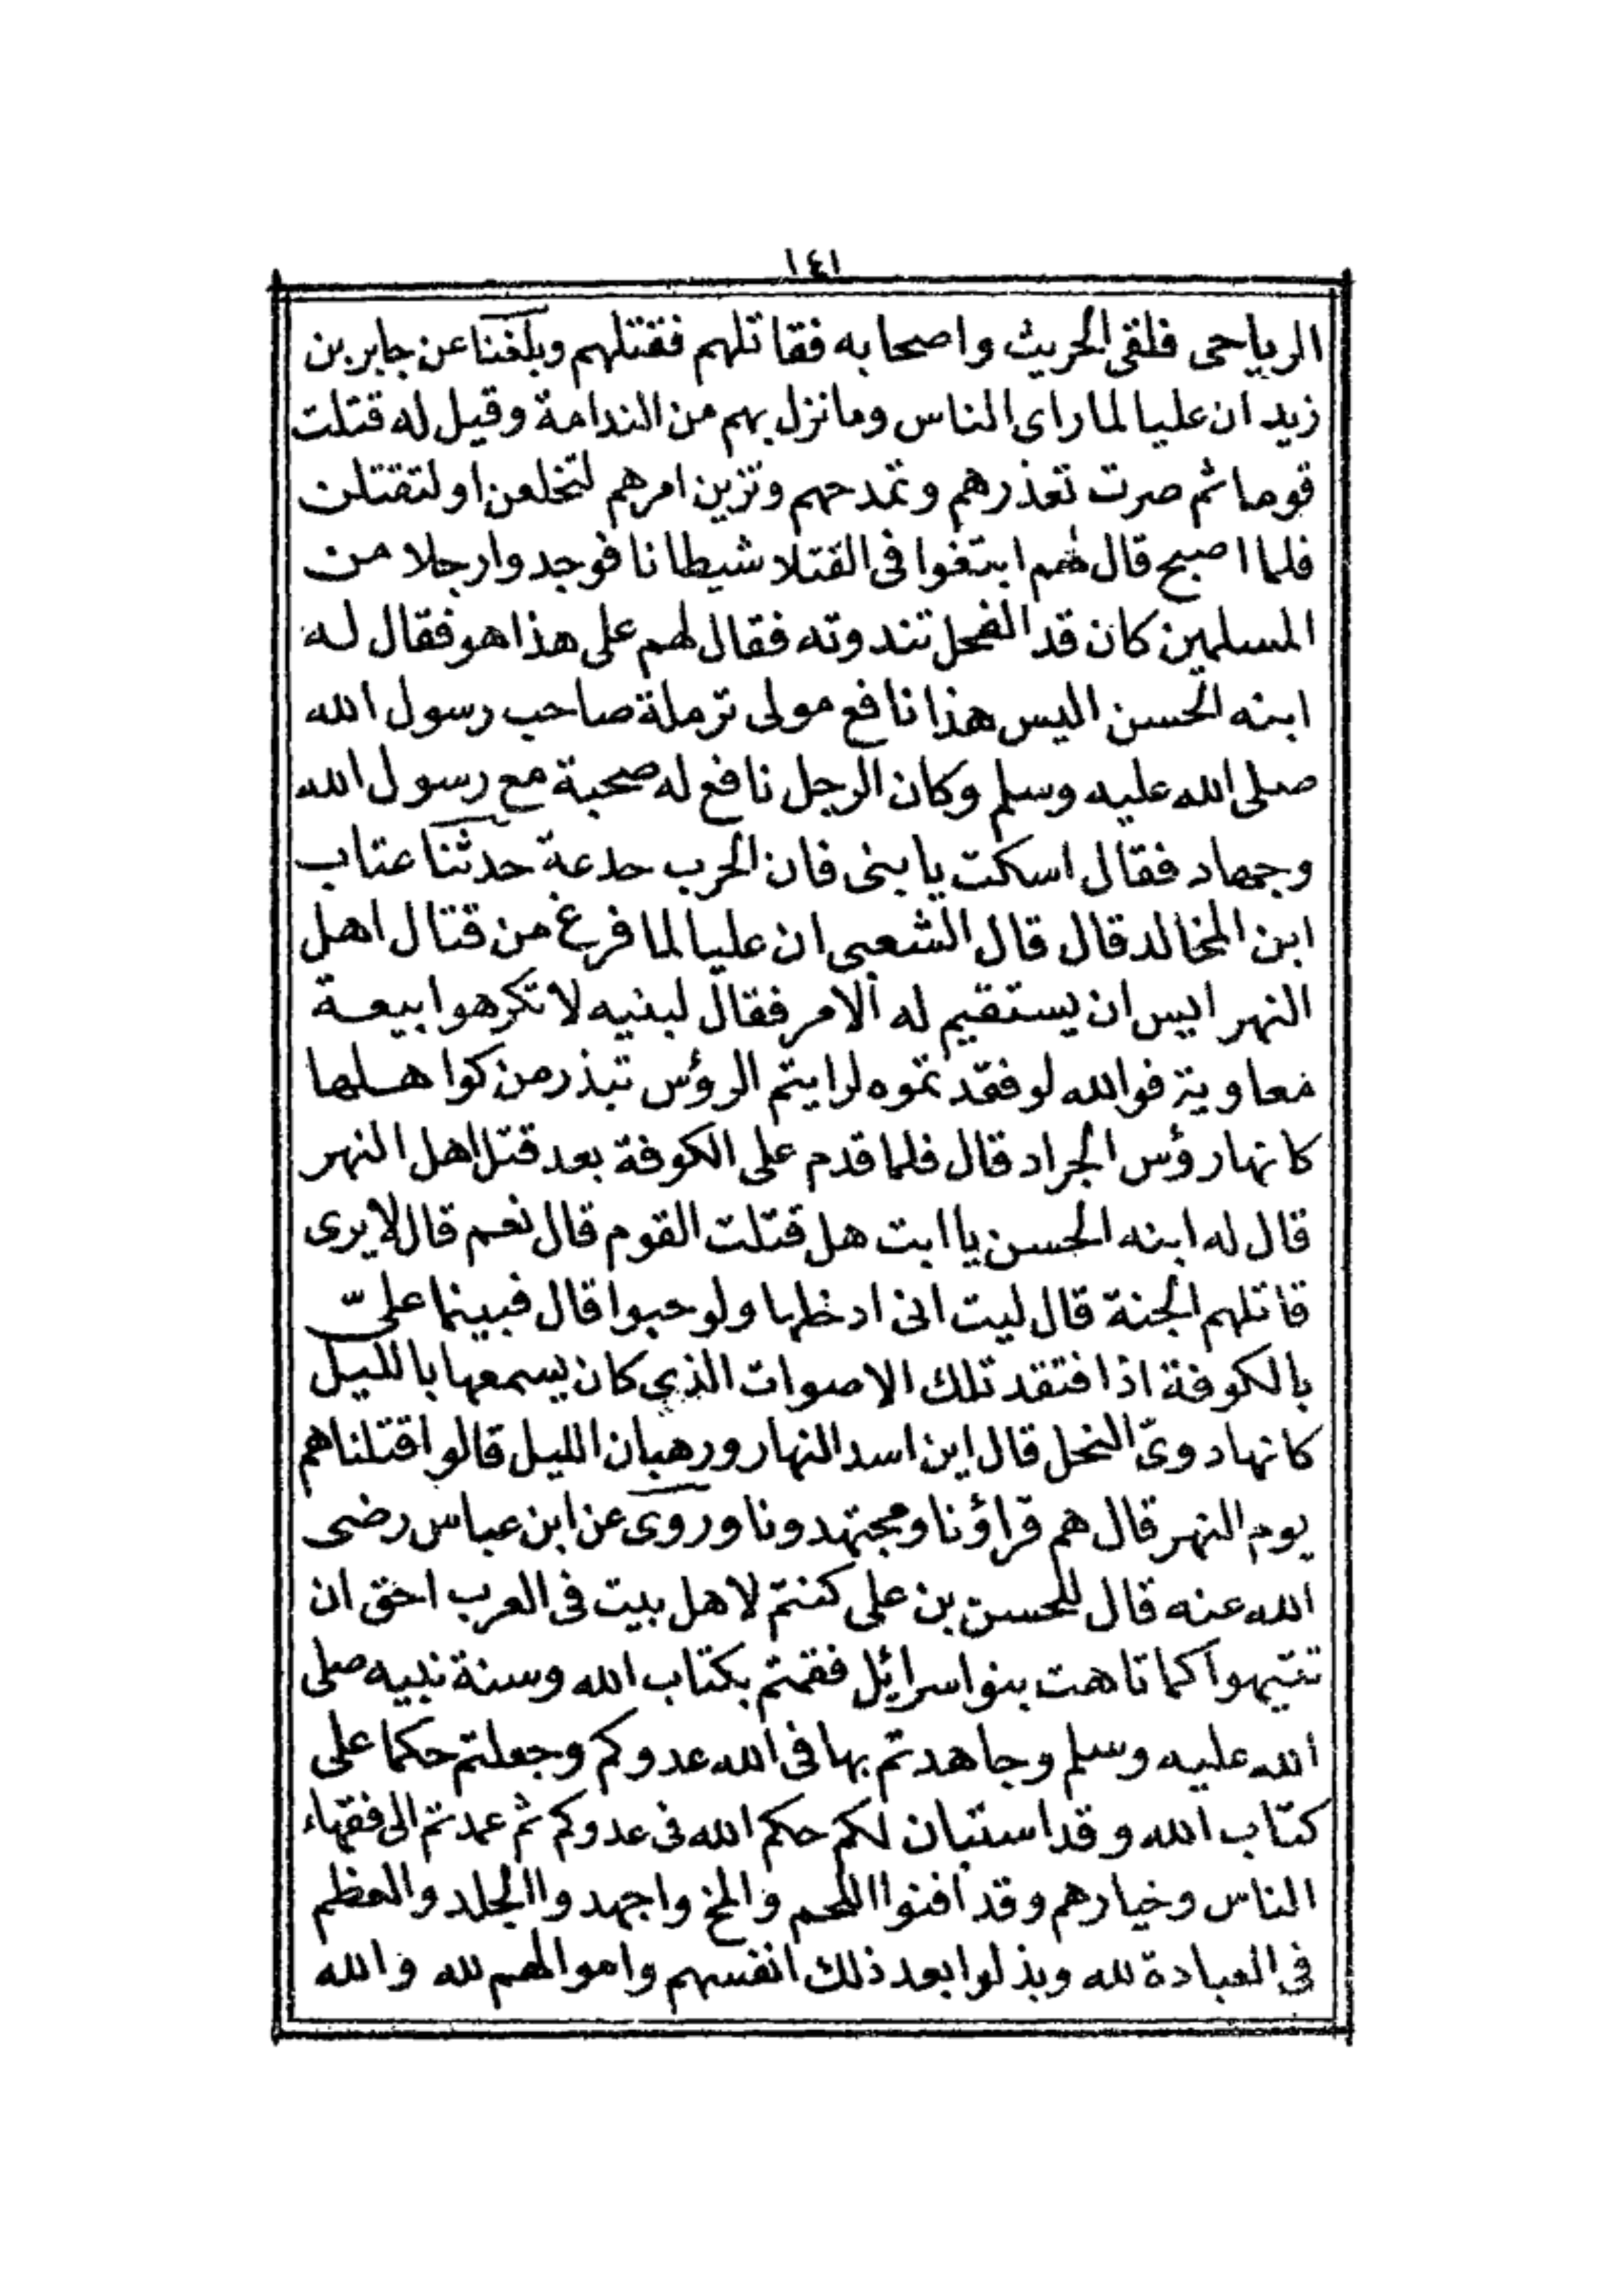 ١٤١
الرياحى فلقى الحريث واصحابه فقاتلهم فقتلهم وبلغنا عن جابر بن
زيد ان عليا لما راى الناس وما نزل بهم من الندامة وقيل له قتلت
قوما ثم صرت تعذرهم وتمدحهم وتزين امرهم لتخلعن او لتقتلن
فلما اصبح قال لهم ابتغوا فى القتلا شيطانا فوجدوا رجلا من
المسلمين كان قد الفحل تندوته فقال لهم على هذا هو فقال له
ابنه الحسن اليس هذا نافع مولى ترملة صاحب رسول الله
صلى الله عليه وسلم وكان الرجل نافع له صحبة مع رسول الله
وجهاد فقال اسكت يا بنى فان الحرب خدعة حدثنا عتاب
ابن المخالد قال قال الشعبى ان عليا لما فرغ من قتال اهل
النهر ايس ان يستقيم له الامر فقال لبنيه لا تكرهوا بيعة
معاوية فوالله لو فقدتموه لرايتم الرؤس تبذر من كواهلها
كانها رؤس الجراد قال فلما قدم على الكوفة بعد قتل اهل النهر
قال له ابنه الحسن يا ابت هل قتلت القوم قال نعم قال لا يرى
قاتلهم الجنة قال ليت انى ادخلها ولو حبوا قال فبينما علىّ
بالكوفة اذا فتقد تلك الاصوات الذي كان يسمعها بالليل
كانها دوىّ النحل قال اين اسد النهار ورهبان الليل قالوا قتلناهم
يوم النهر قال هم قراؤنا ومجتهدونا وروى عن ابن عباس رضى
الله عنه قال للحسن بن على كنتم لاهل بيت فى العرب احق ان
تتيهوا كما تاهت بنوا سرائيل فقمتم بكتاب الله وسنة نبيه صلى
الله عليه وسلم وجاهدتم بها فى الله عدوكم وجعلتم حكما على
كتاب الله وقد استبان لكم حكم الله فى عدوكم ثم عمدتم الى فقهاء
الناس وخيارهم وقد افنوا اللحم والمخ واجهدوا الجلد والعظم
فى العبادة لله وبذلوا بعد ذلك انفسهم واموالهم لله والله